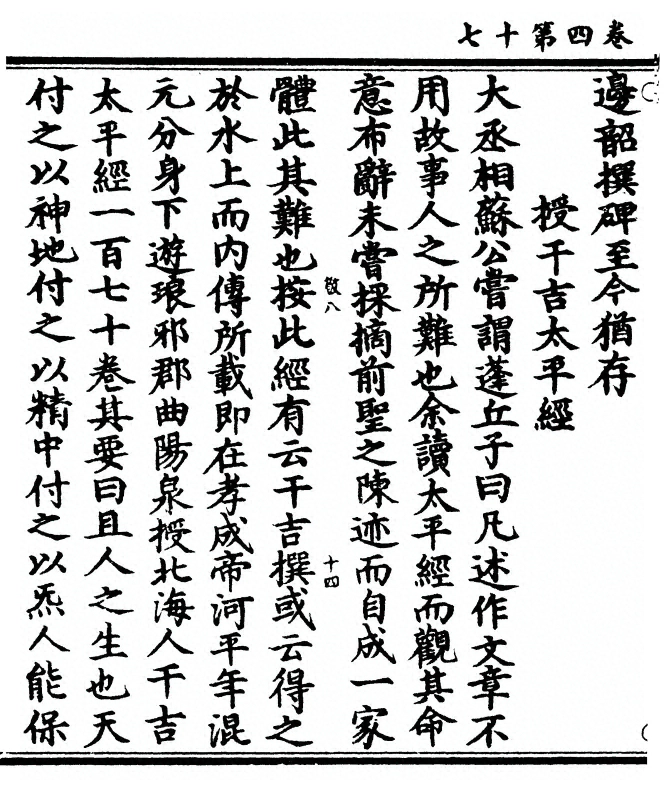 卷四第十七
邊韶撰碑至今猶存
授干吉太平經
大丞相蘇公嘗謂蓬丘子曰凡述作文章不
用故事人之所難也余讀太平經而觀其命
意布辭未嘗採摘前聖之陳迹而自成一家
敬八
十四
體此其難也按此經有云干吉撰或云得之
於水上而內傳所載即在孝成帝河平年混
元分身下遊琅邪郡曲陽泉授北海人干吉
太平經一百七十卷其要曰且人之生也天
付之以神地付之以精中付之以炁人能保